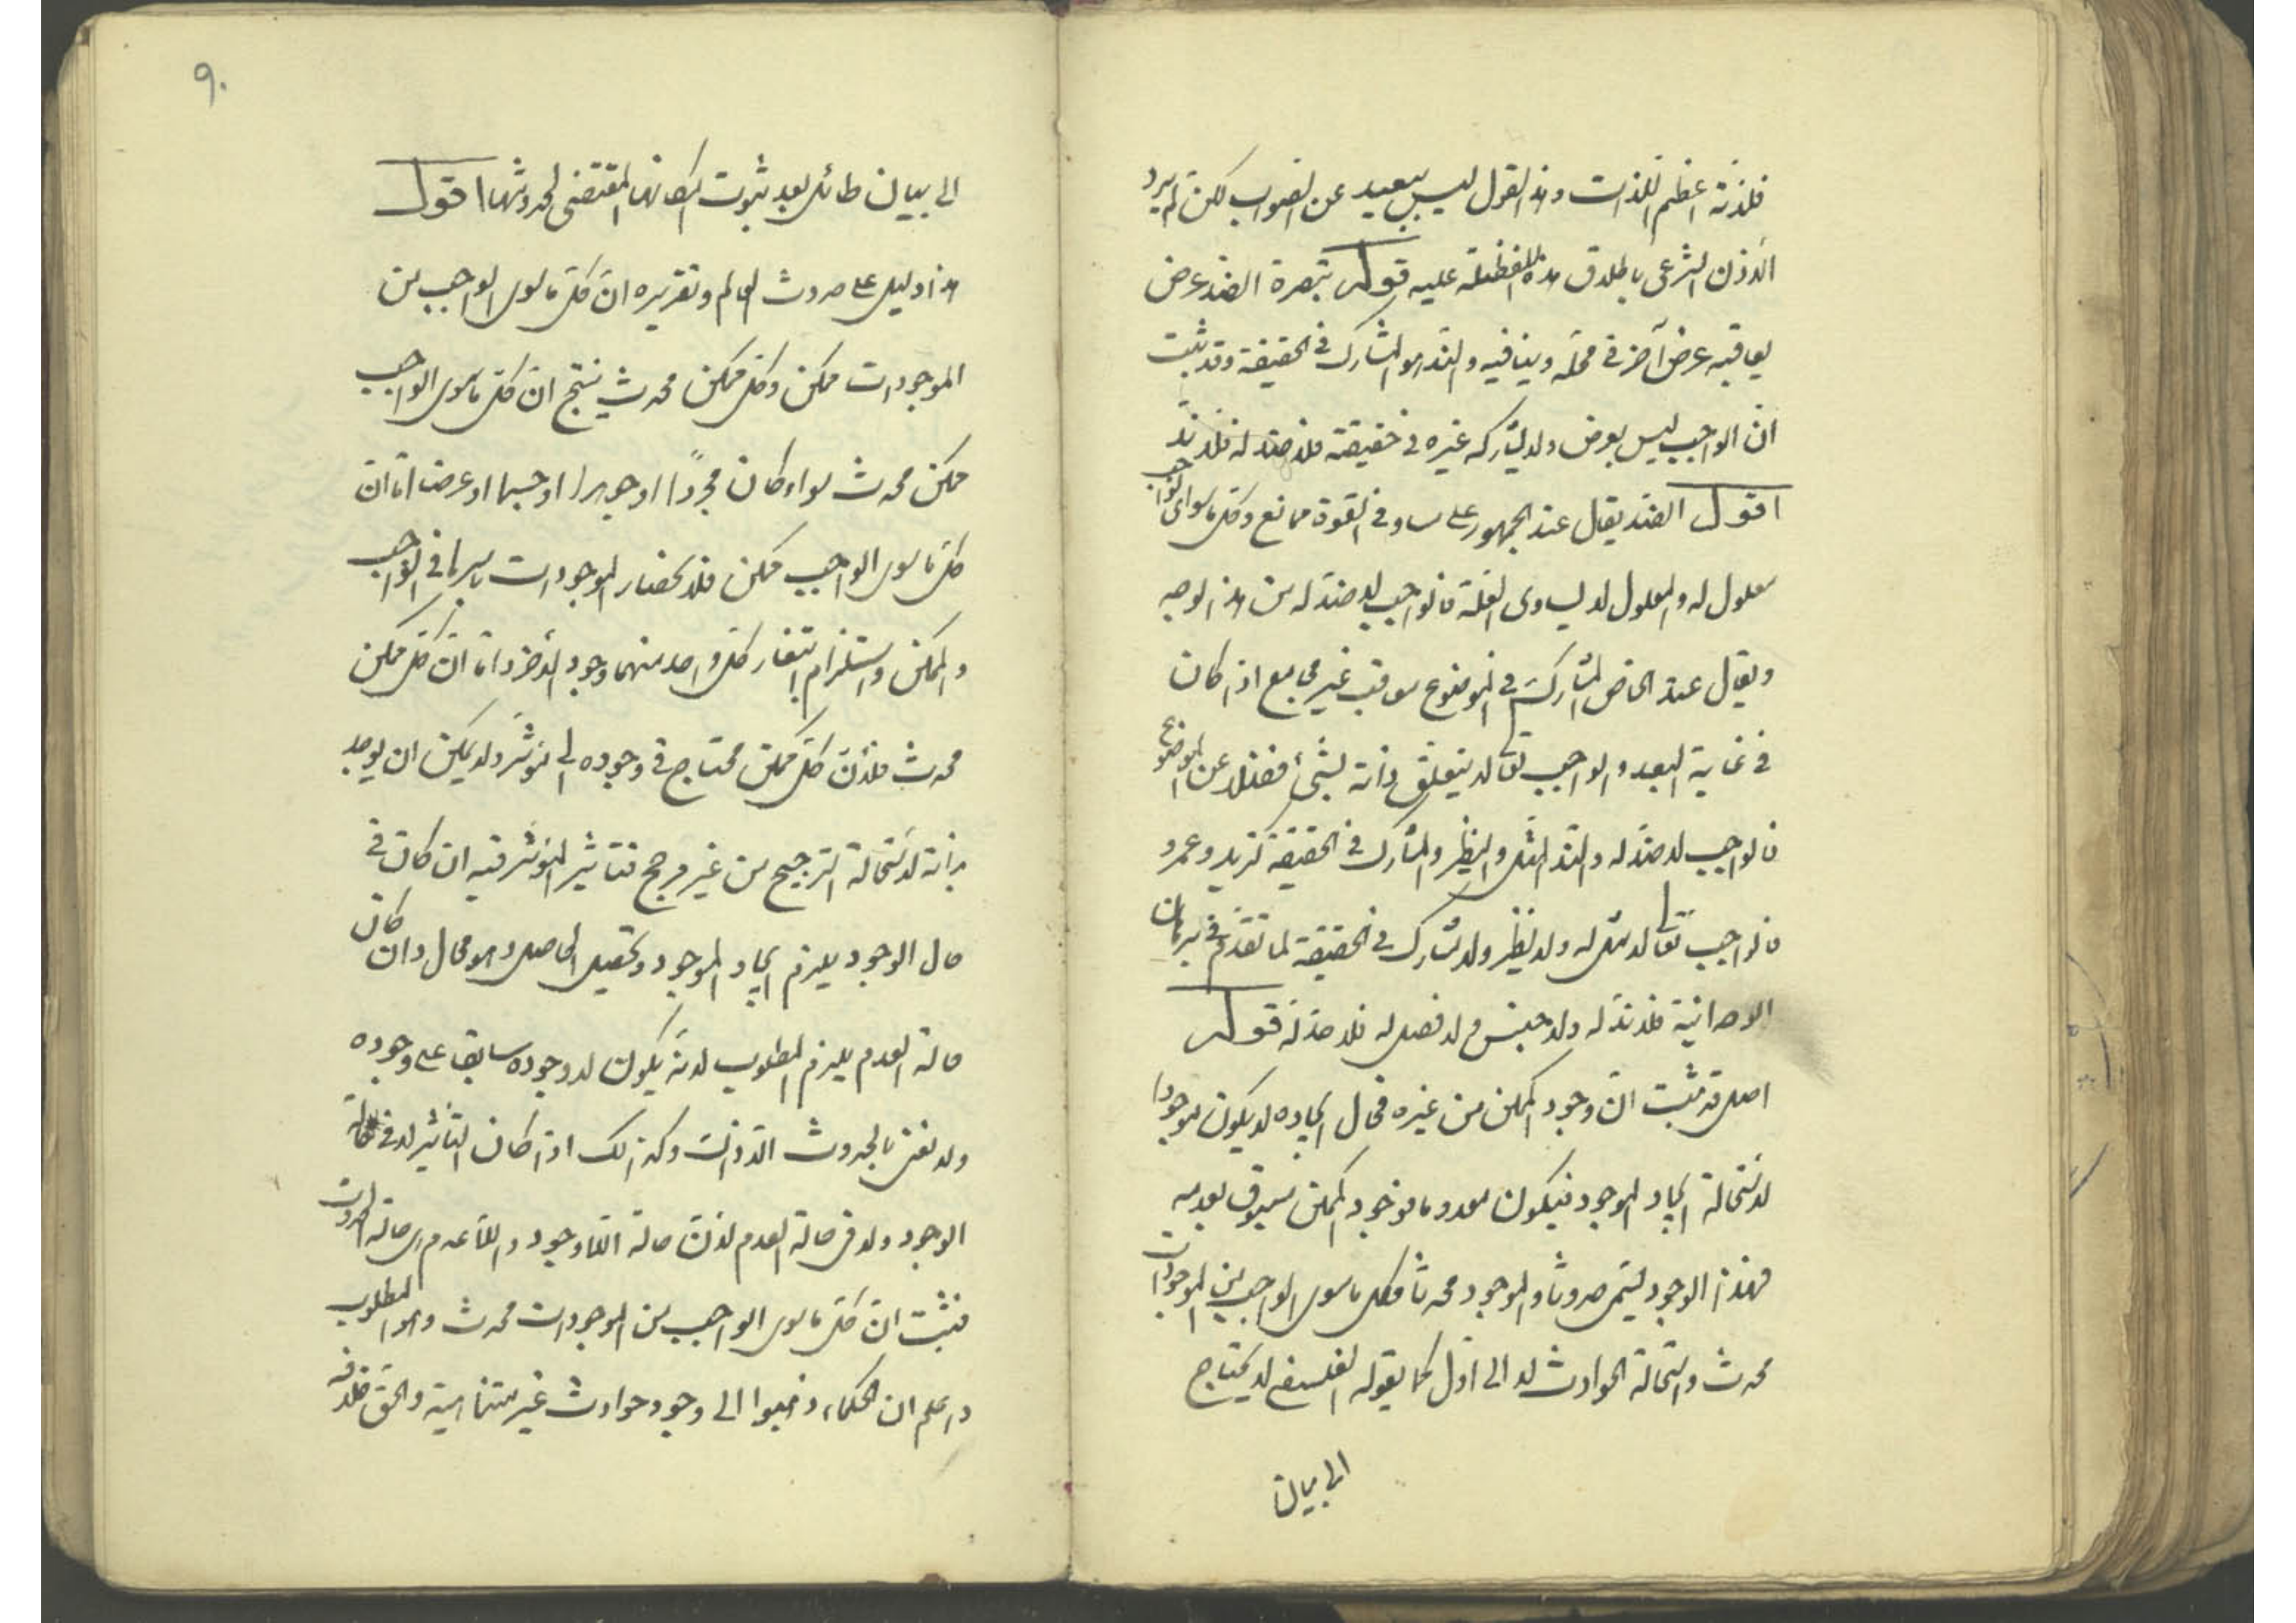 فلذته اعظم اللذات وهذا القول ليس ببعيد عن الصواب لكن لم يرد
الاذن الشرعى باطلاق هذه اللفظة عليه قوله تبصرة الضد عرض
يعاقبه عرض آخر فى محله وينافيه والند هو المشارك فى الحقيقة وقد ثبت
ان الواجب ليس بعرض ولا يشاركه غيره فى حقيقته فلا ضد له فلا ندّ
اقول الضد يقال عند الجمهور على مساو فى القوة ممانع وكل ما سواى الواجب
معلول له والمعلول لا يساوى العلة فالواجب لا ضد له من هذا الوجه
ويقال عند الخاص لمشارك فى الموضوع معاقب غير مجامع اذا كان
فى غاية البعد والواجب تعالى لا يتعلق ذاته بشئ فضلا عن الموضوع
فالواجب لا ضد له والند المثل والنظير والمشارك فى الحقيقة كزيد وعمرو
فالواجب تعالى لا مثل له ولا نظير ولا مشارك فى الحقيقة لما تقدم فى برهان
الوحدانية فلا ند له ولا جنس ولا فصل له فلا حد له قوله
اصل قد ثبت ان وجود الممكن من غيره فحال ايجاده لا يكون موجودا
لاستحالة ايجاد الموجود فيكون معدوما فوجود الممكن مسبوق بعدمه
فهذا الوجود يسمى حدوثا والموجود محدثا فكل ما سوى الواجب من الموجودات
محدث واستحالة الحوادث لا الى اول كما يقوله الفلسفى لا يحتاج
الى بيان
٩٠
الى بيان طائل بعد ثبوت امكانها المقتضى لحدوثها اقول
هذا دليل على حدوث العالم وتقريره ان كل ما سوى الواجب من
الموجودات ممكن وكل ممكن محدث ينتج ان كل ما سوى الواجب
ممكن محدث سواء كان مجردًا او جوهرا او جسما او عرضا اما ان
كل ما سوى الواجب ممكن فلانحصار الموجودات باسرها فى الواجب
والممكن واستلزام انتفاء كل واحد منهما وجود الاخر واما ان كل ممكن
محدث فلان كل ممكن محتاج فى وجوده الى مؤثر ولا يمكن ان يوجد
بذاته لاستحالة الترجيح من غير مرجح فتاثير المؤثر فيه ان كان فى
حال الوجود يلزم ايجاد الموجود وتحصيل الحاصل وهو محال وان كان
حالة العدم يلزم المطلوب لانه يكون لا وجوده سابقا على وجوده
ولا نعنى بالحدوث الا ذلك وكذلك اذا كان التأثير لا فى حالة
الوجود ولا فى حالة العدم لان حالة اللاوجود واللاعدم هى حالة الحدوث
فثبت ان كل ما سوى الواجب من الموجودات محدث وهو المطلوب
واعلم ان الحكماء ذهبوا الى وجود حوادث غير متناهية والحق خلافه